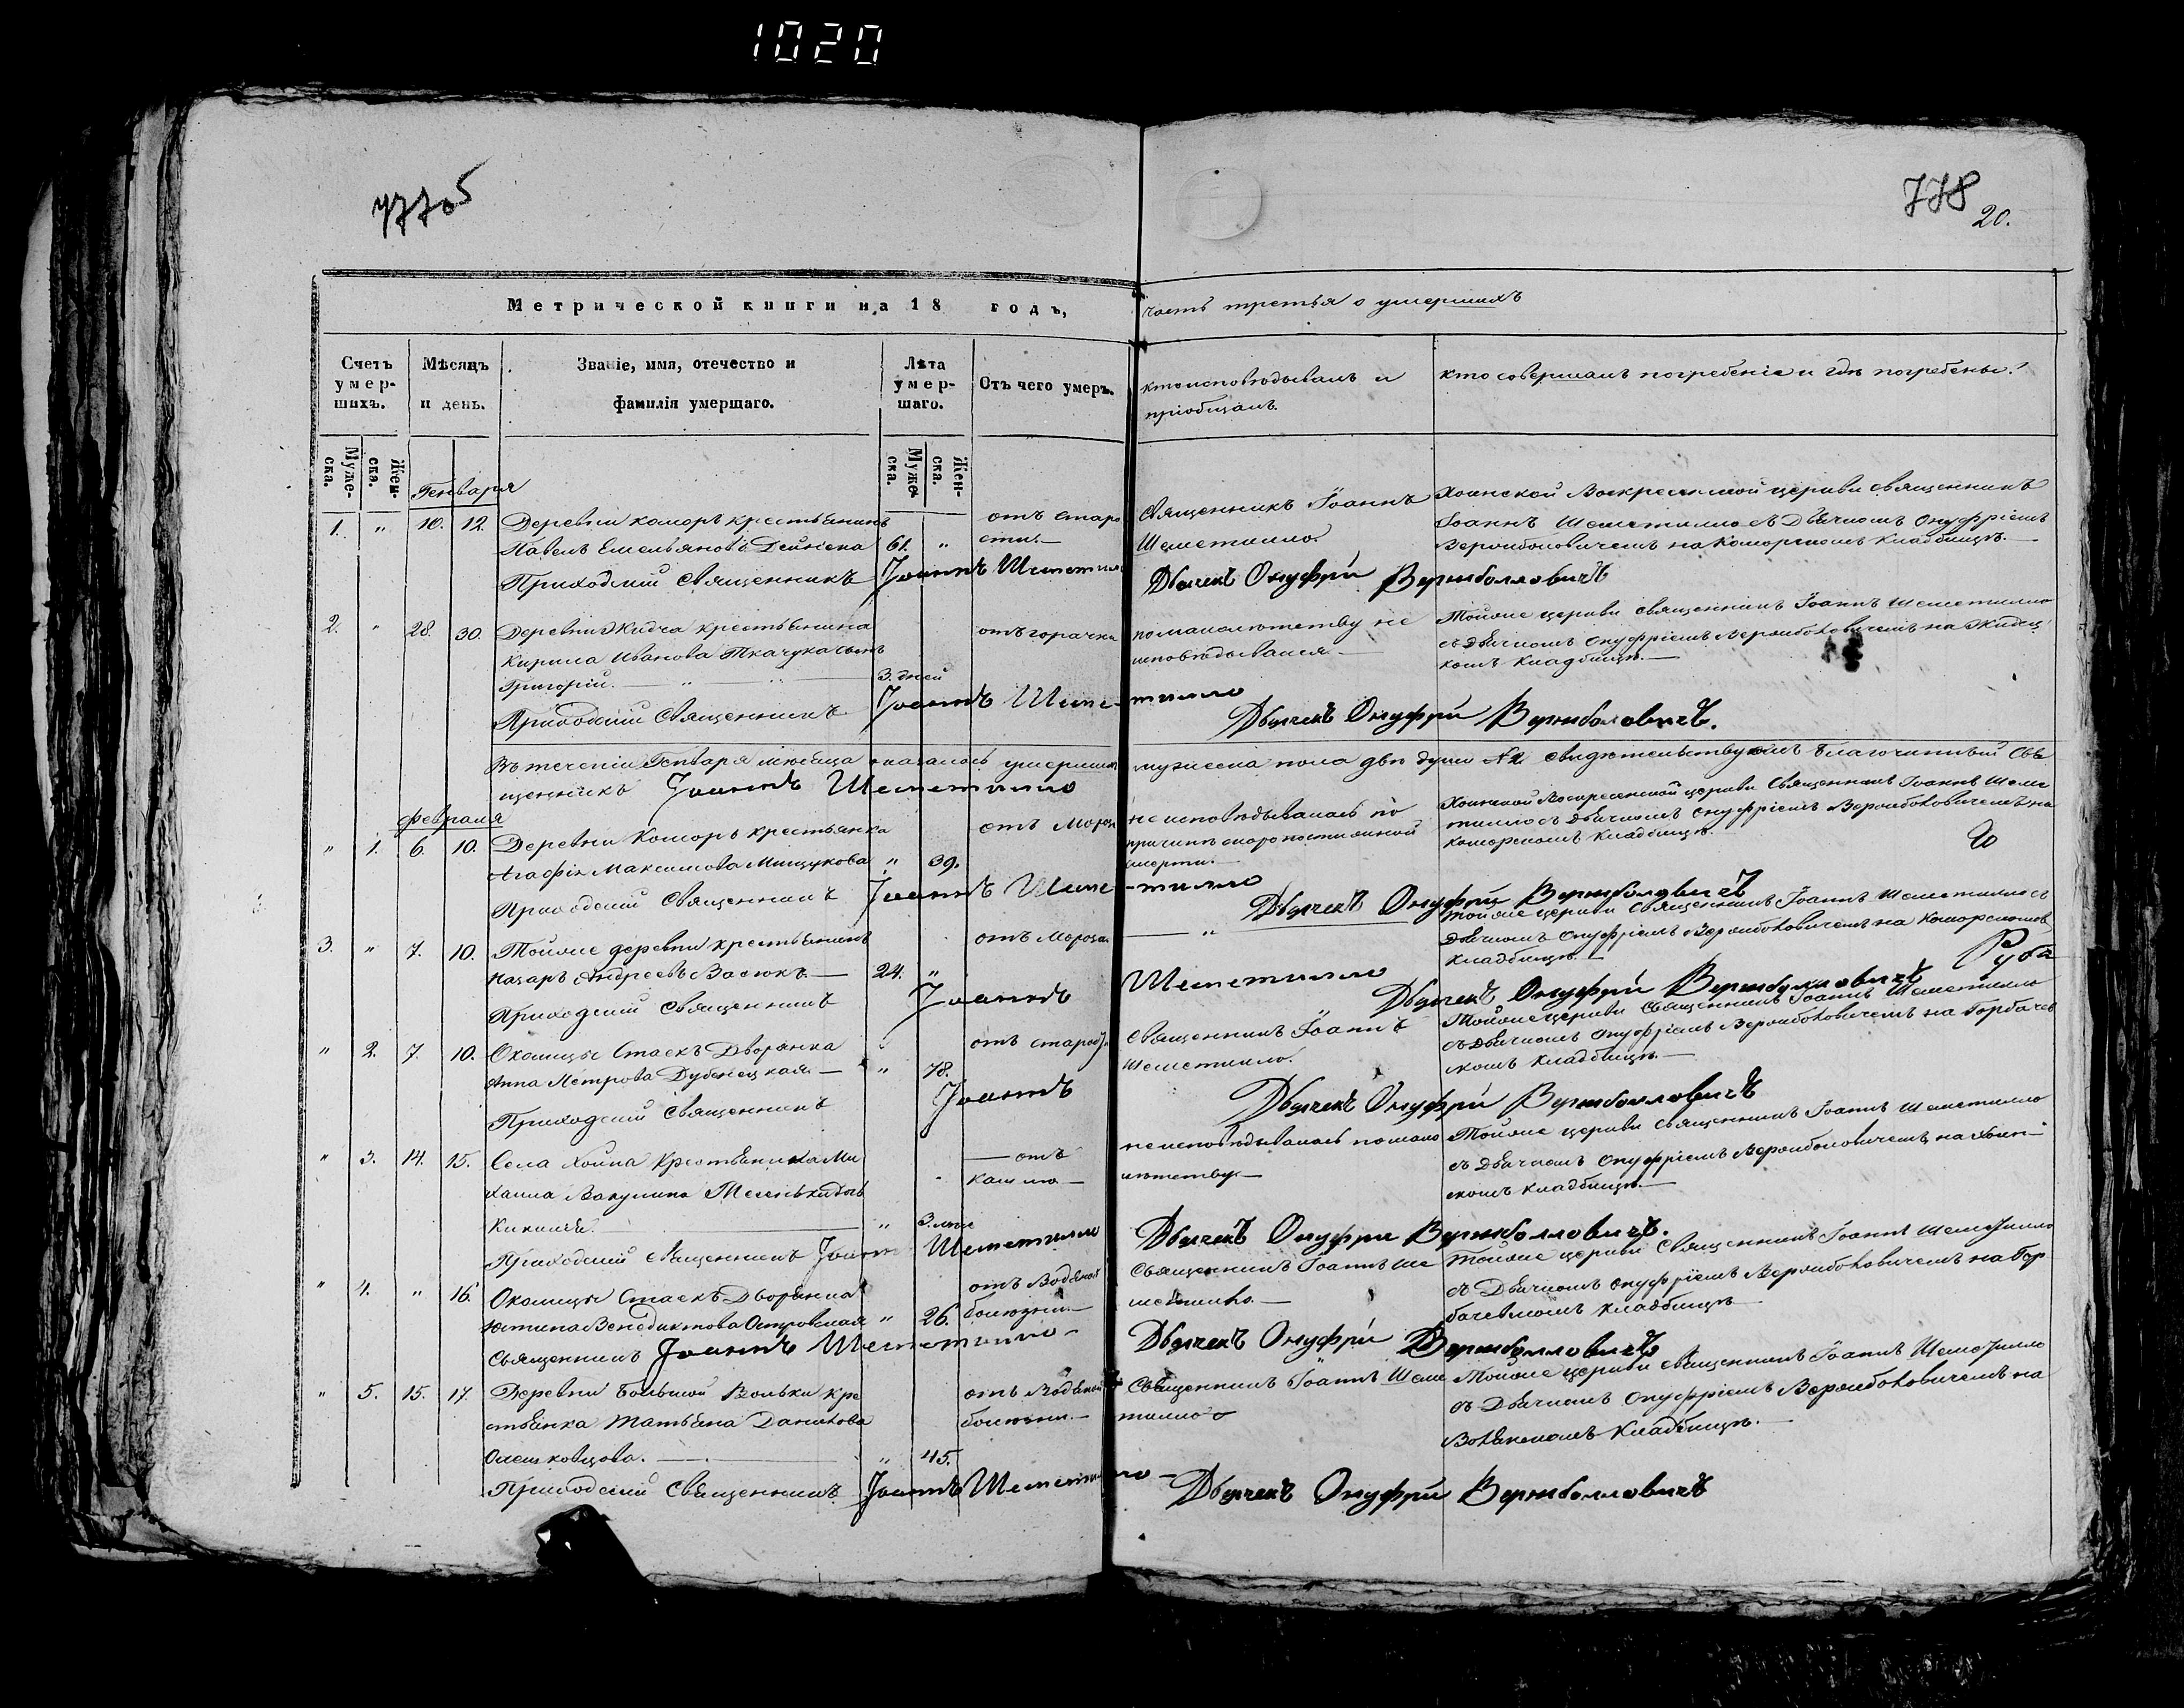 1020
777об
778
20.
Метрической книги на 18 годъ,
часть третья о умершихъ
Счетъ умершихъ.
Мѣсяцъ и день.
Званіе, имя, отечество и фамилія умершаго.
Лѣта умершаго.
Отъ чего умеръ.
кто исповѣдывалъ и
пріобщалъ.
кто совершалъ погребеніе и гдѣ погребены?
Мужеска.
Женска.
Мужеска.
Женска.
Генваря
1. " 10. 12. Деревни коморъ крестьянинъ отъ старо
Павелъ Емельяновъ Дейнека 61. " сти.
Священникъ Іоаннъ
Шеметилло.
Хоинской Воскресенской церкви священникъ
Іоаннъ Шеметилло съ Дьячкомъ Онуфріемъ
Вержболовичемъ на Коморскомъ Кладбищѣ.
Приходскій Священникъ Іоаннъ Шеметилло
Дьячекъ Онуфрій Вержболловичъ
2. " 28. 30. Деревни Жидча крестьянина отъ горачки
Кирила Иванова Ткачука сынъ
Григорій. 3. дней
по малолѣтству не
исповѣдывался
Тойже церкви священникъ Іоаннъ Шеметилло
съ Дьячкомъ Онуфріемъ Вержболовичемъ на Жидец
комъ Кладбищѣ.
Приходскій Священникъ Іоаннъ Шеметилло
Дьячекъ Онуфрій Вержболловичъ.
Въ теченіи Генваря мѣсяца оказалось умершихъ мужеска пола двѣ души №2 свидѣтельствуемъ Благочинный Свя
щенникъ Іоаннъ Шеметилло
Февраля
" 1. 6. 10. Деревни Коморъ крестьянка отъ Мороза
Агафія Максимова Мищукова " 39.
не исповѣдывалась по
причинѣ скоропостижной
смерти.
Хоинской Воскресенской церкви Священникъ Іоаннъ Шеме
тилло съ Дьячкомъ Онуфріемъ Вержболовичемъ на
коморскомъ Кладбищѣ.
Приходскій Священникъ Іоаннъ Шеметилло
Дьячекъ Онуфрій Вержболовичъ
3. " 7. 10. Тойже деревни крестьянинъ отъ Мороза
Назаръ Андреевъ Васюкъ. 24. "
"
Тойже церкви Священникъ Іоаннъ Шеметилло съ
Дьячкомъ Онуфріемъ Вержболовичемъ на Коморскомъ
Кладбищѣ.
Приходскій Священникъ Іоаннъ Шеметилло
Дьячекъ Онуфрій Вержболловичъ
" 2. 7. 10. Околицы Стаекъ Дворянка отъ старос.
Анна Петрова Дубенецкая. " 78.
Священникъ Іоаннъ
Шеметилло.
Тойже церкви Священникъ Іоаннъ Шеметилло
съ Дьячкомъ Онуфріемъ Вержболовичемъ на Горбачев
скомъ Кладбищѣ.
Приходскій Священникъ Іоаннъ
Дьячекъ Онуфрій Вержболловичъ
" 3. 14. 15. Села Хойна Крестьянина Ми отъ
хаила Вакулина дочь кашлю
3. лѣтъ
не исповѣдывалась по мало
лѣтству
Тойже церкви священникъ Іоаннъ Шеметилло
съ Дьячкомъ Онуфріемъ Вержболовичемъ на Хоин
скомъ Кладбищѣ.
Приходскій Священникъ Іоаннъ Шеметилло
Дьячекъ Онуфрій Вержболловичъ.
" 4. " 16. Околицы Стаекъ Дворянка отъ Водяной
Юстина Венедиктова Островская " 26. болюзни.
Священникъ Іоаннъ Ше
метилло.
Тойже церкви Священникъ Іоаннъ Шеметилло
съ Дьячкомъ Онуфріемъ Вержболовичемъ на Гор
бачевскомъ кладбищѣ
Священникъ Іоаннъ Шеметилло
Дьячекъ Онуфрій Вержболловичъ
" 5. 15. 17. Деревни Большой Вольки кре отъ Водяной
стьянка Татьяна Данилова болюзни.
Олешковцова. " 45.
Священникъ Іоаннъ Шеме
тилло
Тойже церкви священникъ Іоаннъ Шеметилло
съ Дьячкомъ Онуфріемъ Вержболовичемъ на
Волькскомъ Кладбищѣ.
Приходскій Священникъ Іоаннъ Шеметилло
Дьячекъ Онуфрій Вержболловичъ